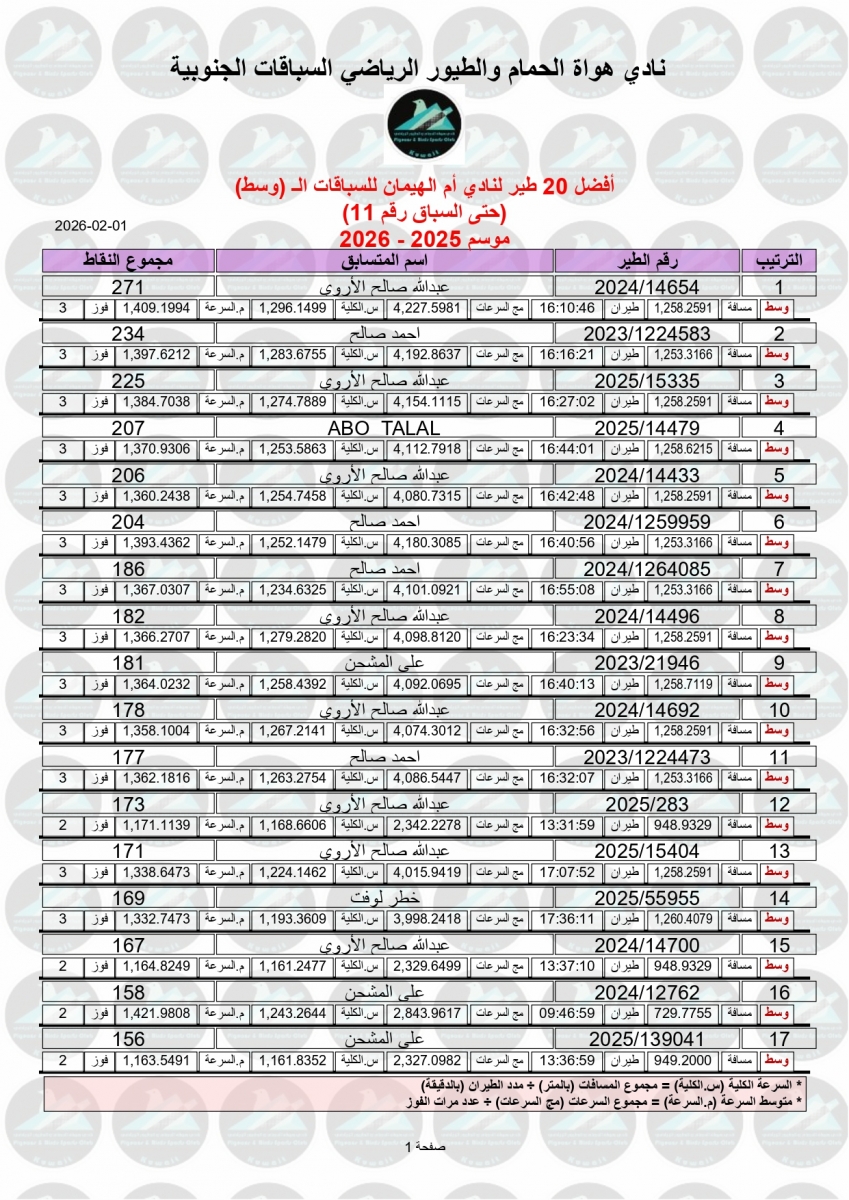 نادي هواة الحمام والطيور الرياضي السباقات الجنوبية
Pigeons & Birds Sports Club
Kuwait
أفضل 20 طير لنادي أم الهيمان للسباقات الـ (وسط)
(حتى السباق رقم 11)
2026-02-01
موسم 2025 - 2026
الترتيب رقم الطير اسم المتسابق مجموع النقاط
1 2024/14654 عبدالله صالح الأروي 271
وسط مسافة 1,258.2591 طيران 16:10:46 مج السرعات 4,227.5981 س.الكلية 1,296.1499 م.السرعة 1,409.1994 فوز 3
2 2023/1224583 احمد صالح 234
وسط مسافة 1,253.3166 طيران 16:16:21 مج السرعات 4,192.8637 س.الكلية 1,283.6755 م.السرعة 1,397.6212 فوز 3
3 2025/15335 عبدالله صالح الأروي 225
وسط مسافة 1,258.2591 طيران 16:27:02 مج السرعات 4,154.1115 س.الكلية 1,274.7889 م.السرعة 1,384.7038 فوز 3
4 2025/14479 ABO TALAL 207
وسط مسافة 1,258.6215 طيران 16:44:01 مج السرعات 4,112.7918 س.الكلية 1,253.5863 م.السرعة 1,370.9306 فوز 3
5 2024/14433 عبدالله صالح الأروي 206
وسط مسافة 1,258.2591 طيران 16:42:48 مج السرعات 4,080.7315 س.الكلية 1,254.7458 م.السرعة 1,360.2438 فوز 3
6 2024/1259959 احمد صالح 204
وسط مسافة 1,253.3166 طيران 16:40:56 مج السرعات 4,180.3085 س.الكلية 1,252.1479 م.السرعة 1,393.4362 فوز 3
7 2024/1264085 احمد صالح 186
وسط مسافة 1,253.3166 طيران 16:55:08 مج السرعات 4,101.0921 س.الكلية 1,234.6325 م.السرعة 1,367.0307 فوز 3
8 2024/14496 عبدالله صالح الأروي 182
وسط مسافة 1,258.2591 طيران 16:23:34 مج السرعات 4,098.8120 س.الكلية 1,279.2820 م.السرعة 1,366.2707 فوز 3
9 2023/21946 على المشحن 181
وسط مسافة 1,258.7119 طيران 16:40:13 مج السرعات 4,092.0695 س.الكلية 1,258.4392 م.السرعة 1,364.0232 فوز 3
10 2024/14692 عبدالله صالح الأروي 178
وسط مسافة 1,258.2591 طيران 16:32:56 مج السرعات 4,074.3012 س.الكلية 1,267.2141 م.السرعة 1,358.1004 فوز 3
11 2023/1224473 احمد صالح 177
وسط مسافة 1,253.3166 طيران 16:32:07 مج السرعات 4,086.5447 س.الكلية 1,263.2754 م.السرعة 1,362.1816 فوز 3
12 2025/283 عبدالله صالح الأروي 173
وسط مسافة 948.9329 طيران 13:31:59 مج السرعات 2,342.2278 س.الكلية 1,168.6606 م.السرعة 1,171.1139 فوز 2
13 2025/15404 عبدالله صالح الأروي 171
وسط مسافة 1,258.2591 طيران 17:07:52 مج السرعات 4,015.9419 س.الكلية 1,224.1462 م.السرعة 1,338.6473 فوز 3
14 2025/55955 خطر لوفت 169
وسط مسافة 1,260.4079 طيران 17:36:11 مج السرعات 3,998.2418 س.الكلية 1,193.3609 م.السرعة 1,332.7473 فوز 3
15 2024/14700 عبدالله صالح الأروي 167
وسط مسافة 948.9329 طيران 13:37:10 مج السرعات 2,329.6499 س.الكلية 1,161.2477 م.السرعة 1,164.8249 فوز 2
16 2024/12762 على المشحن 158
وسط مسافة 729.7755 طيران 09:46:59 مج السرعات 2,843.9617 س.الكلية 1,243.2644 م.السرعة 1,421.9808 فوز 2
17 2025/139041 على المشحن 156
وسط مسافة 949.2000 طيران 13:36:59 مج السرعات 2,327.0982 س.الكلية 1,161.8352 م.السرعة 1,163.5491 فوز 2
* السرعة الكلية (س.الكلية) = مجموع المسافات (بالمتر) ÷ مدد الطيران (بالدقيقة)
* متوسط السرعة (م.السرعة) = مجموع السرعات (مج السرعات) ÷ عدد مرات الفوز
صفحة 1